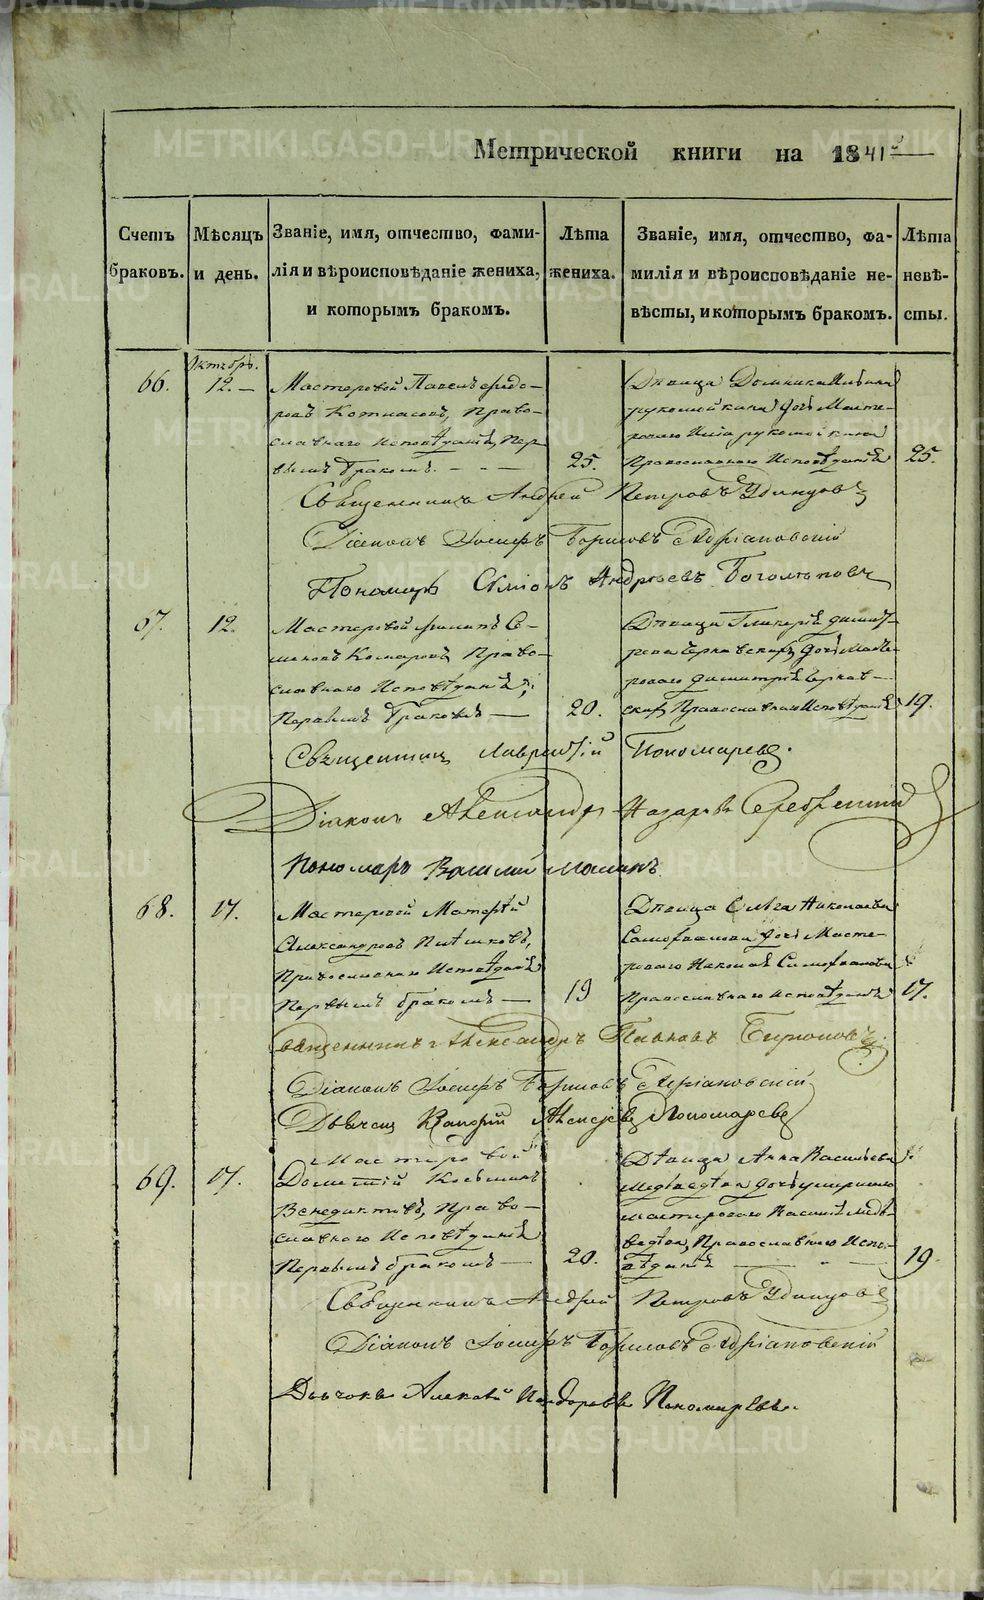 Метрической книги на 1841 г.
Счетъ браковъ.
Мѣсяцъ и день.
Званіе, имя, отчество, фами-
лія и вѣроисповѣданіе жениха,
и которымъ бракомъ.
Лѣта жениха.
Званіе, имя, отчество, фа-
милія и вѣроисповѣданіе не-
вѣсты, и которымъ бракомъ.
Лѣта невѣ-
сты.
Октябрь.
66.
12.
Мастеровой
Право-
славнаго Исповѣданія, Пер-
вымъ бракомъ.
25.
Дѣвица Домника
дочь Масте-
роваго
Православнаго Исповѣданія
25.
Священникъ Андрей Петровъ Удинцовъ
Діаконъ Іосифъ Борисовъ Адріановскій
Пономарь Симіонъ Андреевъ Боголюповъ
67.
12.
Мастеровой Филипъ Се-
меновъ Комаровъ, Право-
славнаго Исповѣданія,
Первымъ бракомъ
20.
Дѣвица Гликерія Димит-
рева дочь Масте-
роваго Димитрія
Православнаго Исповѣданія
19.
Священникъ Лаврентій Пономаревъ.
Діаконъ Александръ Назаровъ Серебренниковъ
Пономарь Василій
68.
17.
Мастеровой
Александровъ
Православнаго Исповѣданія
Первымъ бракомъ
19
Дѣвица Ольга Николаева
Самофалова дочь Масте-
роваго Николая Самофалова
Православнаго Исповѣданія
17.
Священникъ Александръ Павловъ Бирюковъ
Діаконъ Іосифъ Борисовъ Адріановскій
Дьячекъ Валерій Алексѣевъ Пономаревъ
69.
17.
Мастеровой
Дометій Косьминъ
Венедиктовъ, Право-
славнаго Исповѣданія
Первымъ бракомъ
20.
Дѣвица Анна Васильева
Медвѣдева дочь умершаго
мастероваго Василія Медвѣ-
дева, Православнаго Испо-
вѣданія
19.
Священникъ Андрей Петровъ Удинцовъ
Діаконъ Іосифъ Борисовъ Адріановскій
Дьячокъ Алексѣй Пономаревъ.
METRIKI.GASO-URAL.RU